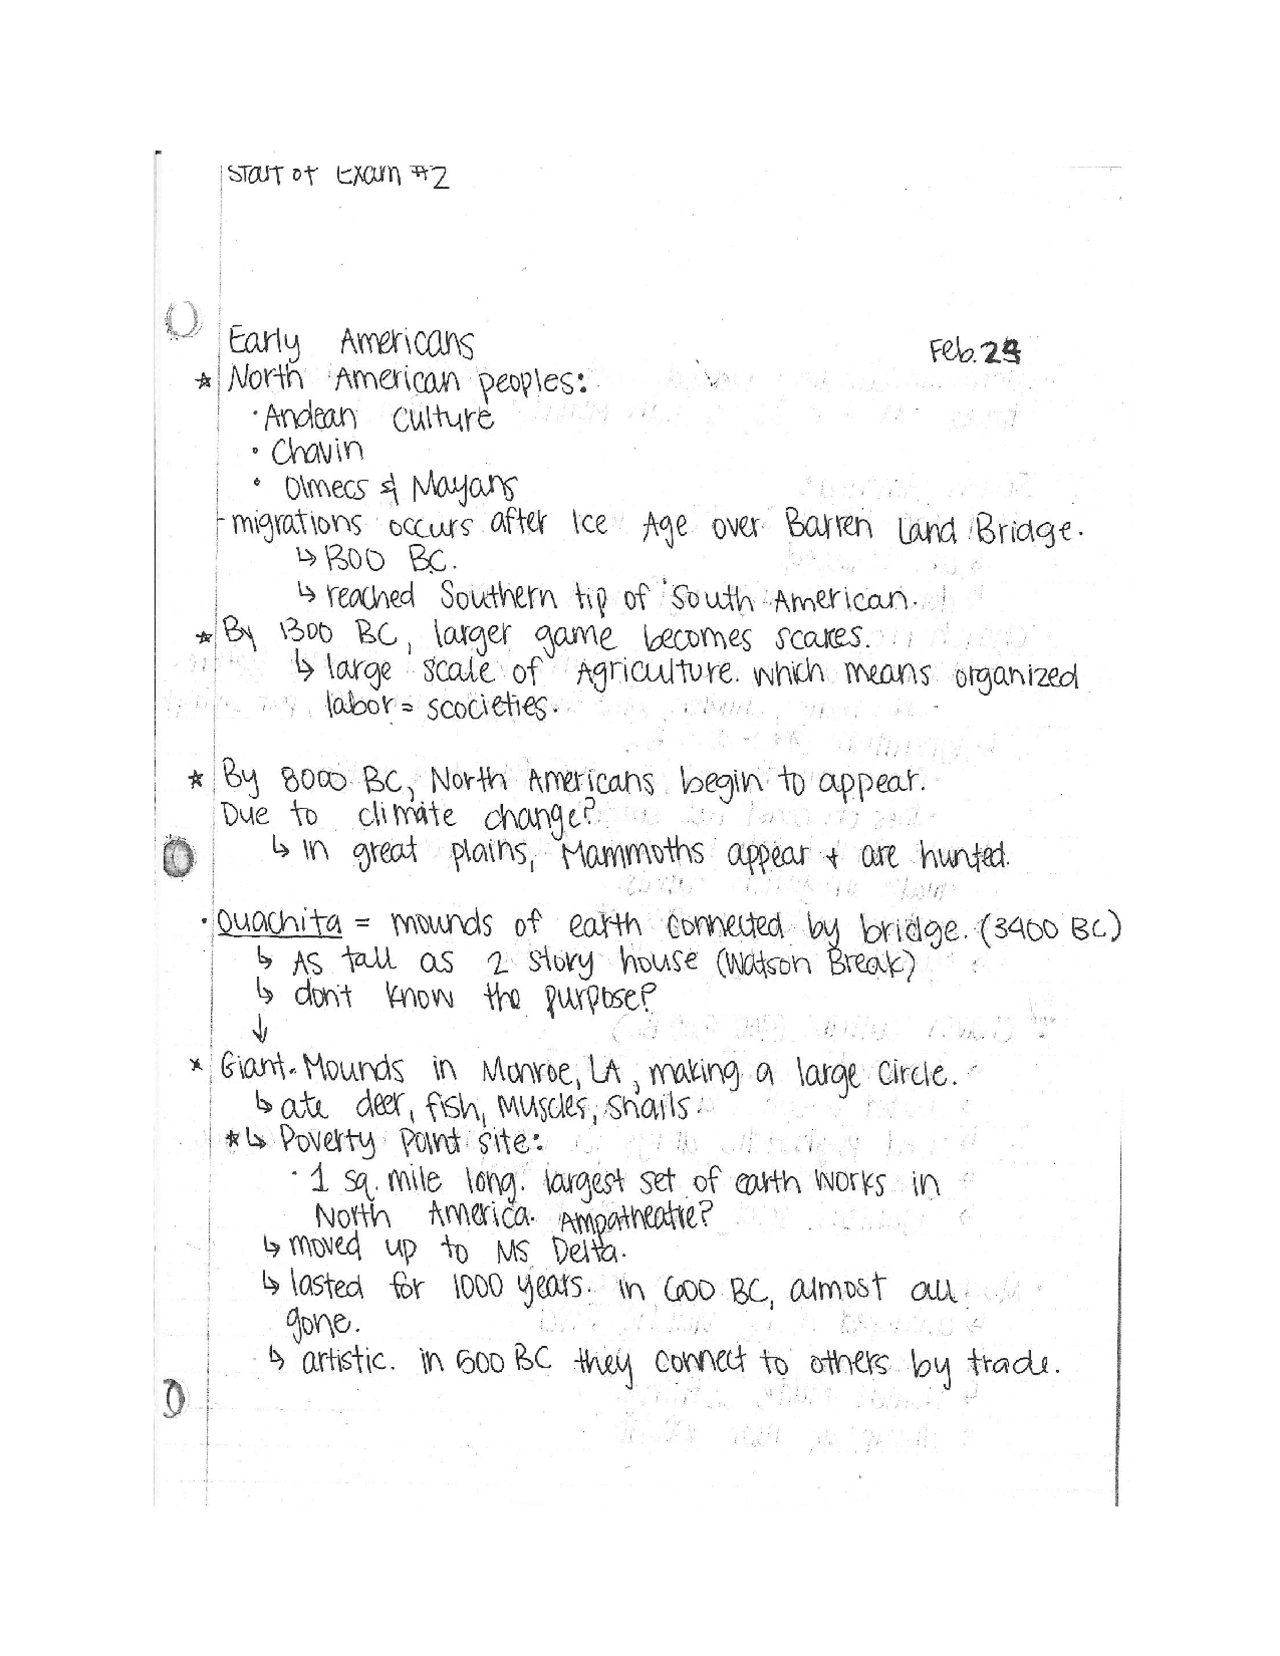 Start of Exam #2
Early Americans
Feb. 25
★ North American peoples:
· Andean Culture
· Chavin
· Olmecs & Mayans
- migrations occurs after Ice Age over Barren Land Bridge.
↳ 1300 BC.
↳ reached Southern tip of South American.
★ By 1300 BC, larger game becomes scares.
↳ large scale of Agriculture. which means organized
labor = scocieties.
★ By 8000 BC, North Americans begin to appear.
Due to climate change?
↳ in great plains, Mammoths appear + are hunted.
· Ouachita = mounds of earth connected by bridge. (3400 BC)
↳ As tall as 2 story house (Watson Break)
↳ don't know the purpose?
↓
★ Giant Mounds in Monroe, LA, making a large circle.
↳ ate deer, fish, muscles, snails.
★ ↳ Poverty Point site:
· 1 sq. mile long. largest set of earth works in
North America. Ampatheatre?
↳ moved up to MS Delta.
↳ lasted for 1000 years. in 600 BC, almost all
gone.
↳ artistic. in 500 BC they connect to others by trade.